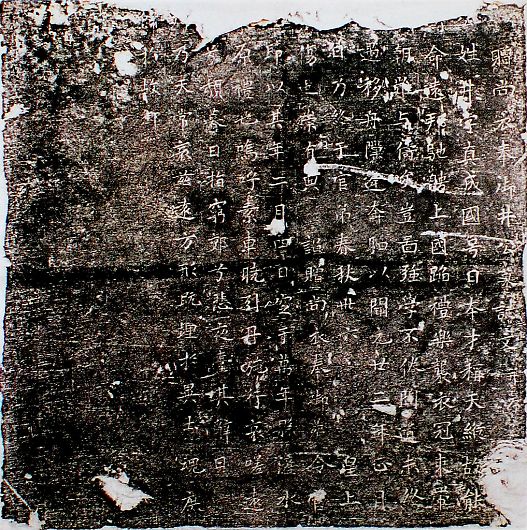 贈尚衣奉御井公墓誌文并序
姓井字真成國号日本才稱天縱故能
命遠邦馳騁上國蹈禮樂襲衣冠束帶
朝難与儔矣豈圖強學不倦問道未終
遇移舟隙逢奔駟以開元廿二年正月
日乃終于官弟春秋卅六 皇上
傷追崇有典 詔贈尚衣奉御葬令官
即以其年二月四日窆于萬年縣滻水
原禮也嗚呼素車曉引丹旐行哀嗟遠
頹暮日指窮郊兮悲夜臺其辭曰
乃天常哀茲遠方形既埋於異土魂庶
故鄉